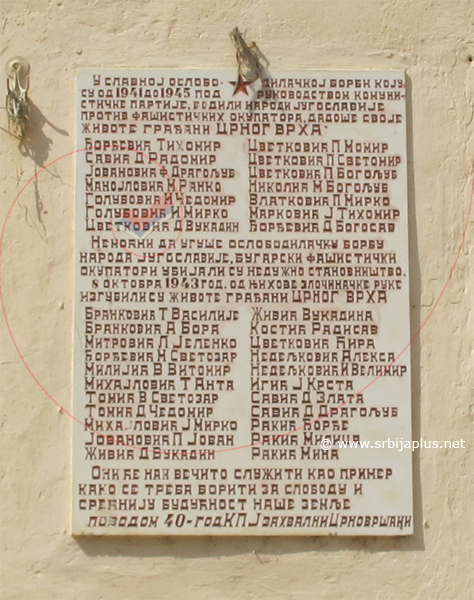 У славној ослобо- дилачкој борби коју
су од 1941 до 1945 под руководством комуни-
стичке партије, водили народи Југославије
против фашистичких окупатора, дадоше своје
животе грађани ЦРНОГ ВРХА:
Ђорђевић Тихомир Цветковић П Момир
Савић Д Радомир Цветковић П Светомир
Јовановић Ф Драгољуб Цветковић П Богољуб
Манојловић М Ранко Николић М Богољуб
Голубовић И Чедомир Влатковић П Мирко
Голубовић И Мирко Марковић Ј Тихомир
Цветковић Д Вукадин Ђорђевић Д Богосав
Немоћни да угуше ослободилачку борбу
народа Југославије, бугарски фашистички
окупатори убијали су недужно становништво.
8 октобра 1943 год. од њихове злочиначке руке
изгубили су животе грађани ЦРНОГ ВРХА
Бранковић Т Василије Живић Вукадина
Бранковић А Бора Костић Радисав
Митровић Л Јеленко Цветковић Ћира
Ђорђевић М Светозар Недељковић Алекса
Милијић В Витомир Недељковић Велимир
Михајловић Т Анта Игић Ј Крста
Томић В Светозар Савић Д Злата
Томић Д Чедомир Савић Д Драгољуб
Михајловић Ј Мирко Ракић Ђорђе
Јовановић П Јован Ракић
Живић Д Вукадин Ракић Мина
© www.srbijaplus.net
Они ће нам вечито служити као пример
како се треба борити за слободу и
срећнију будућност наше земље
поводом 40-год КПЈ захвални Црновршани